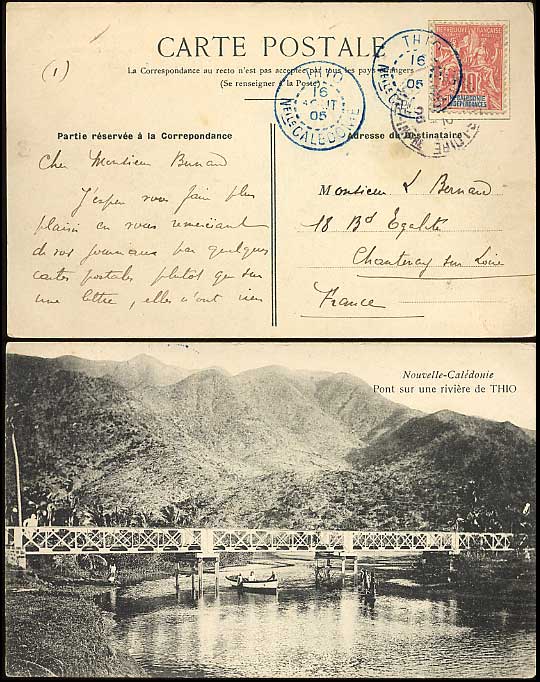 CARTE POSTALE
La Correspondance au recto n'est pas acceptée par tous les pays étrangers
(Se renseigner à la Poste)
(1)
THIO
16
AOUT
05
Nelle CALÉDONIE
THIO
16
05
Nelle CALÉDONIE
RÉPUBLIQUE FRANÇAISE
10
Nlle CALÉDONIE
ET DÉPENDANCES
Partie réservée à la Correpondance
Cher Monsieur Bernard
J'espère vous faire plus
plaisir en vous remerciant
de vos journaux par quelques
cartes postales plutôt que sur
une lettre, elles n'ont rien
Adresse du Destinataire
Monsieur L Bernard
18 Bd Egalité
Chantenay sur Loire
France
Nouvelle-Calédonie
Pont sur une rivière de THIO